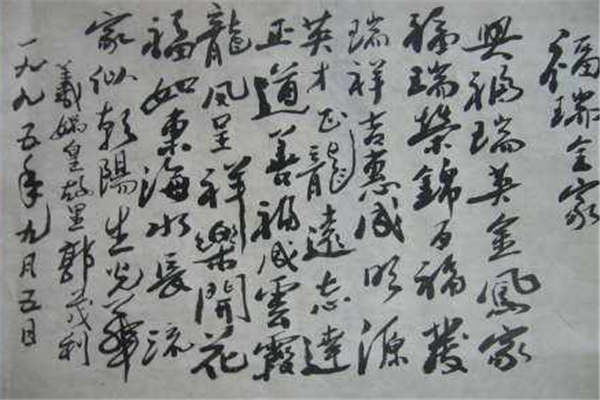 福瑞全家
興福瑞英金鳳家
福瑞榮錦百福發
瑞祥吉惠成明源
英才正龍遠志達
正道善福成雲霞
龍凤呈祥樂開花
福如東海水長流
家似朝陽生光華
羲媧皇故里郭茂利
一九九五年九月五日